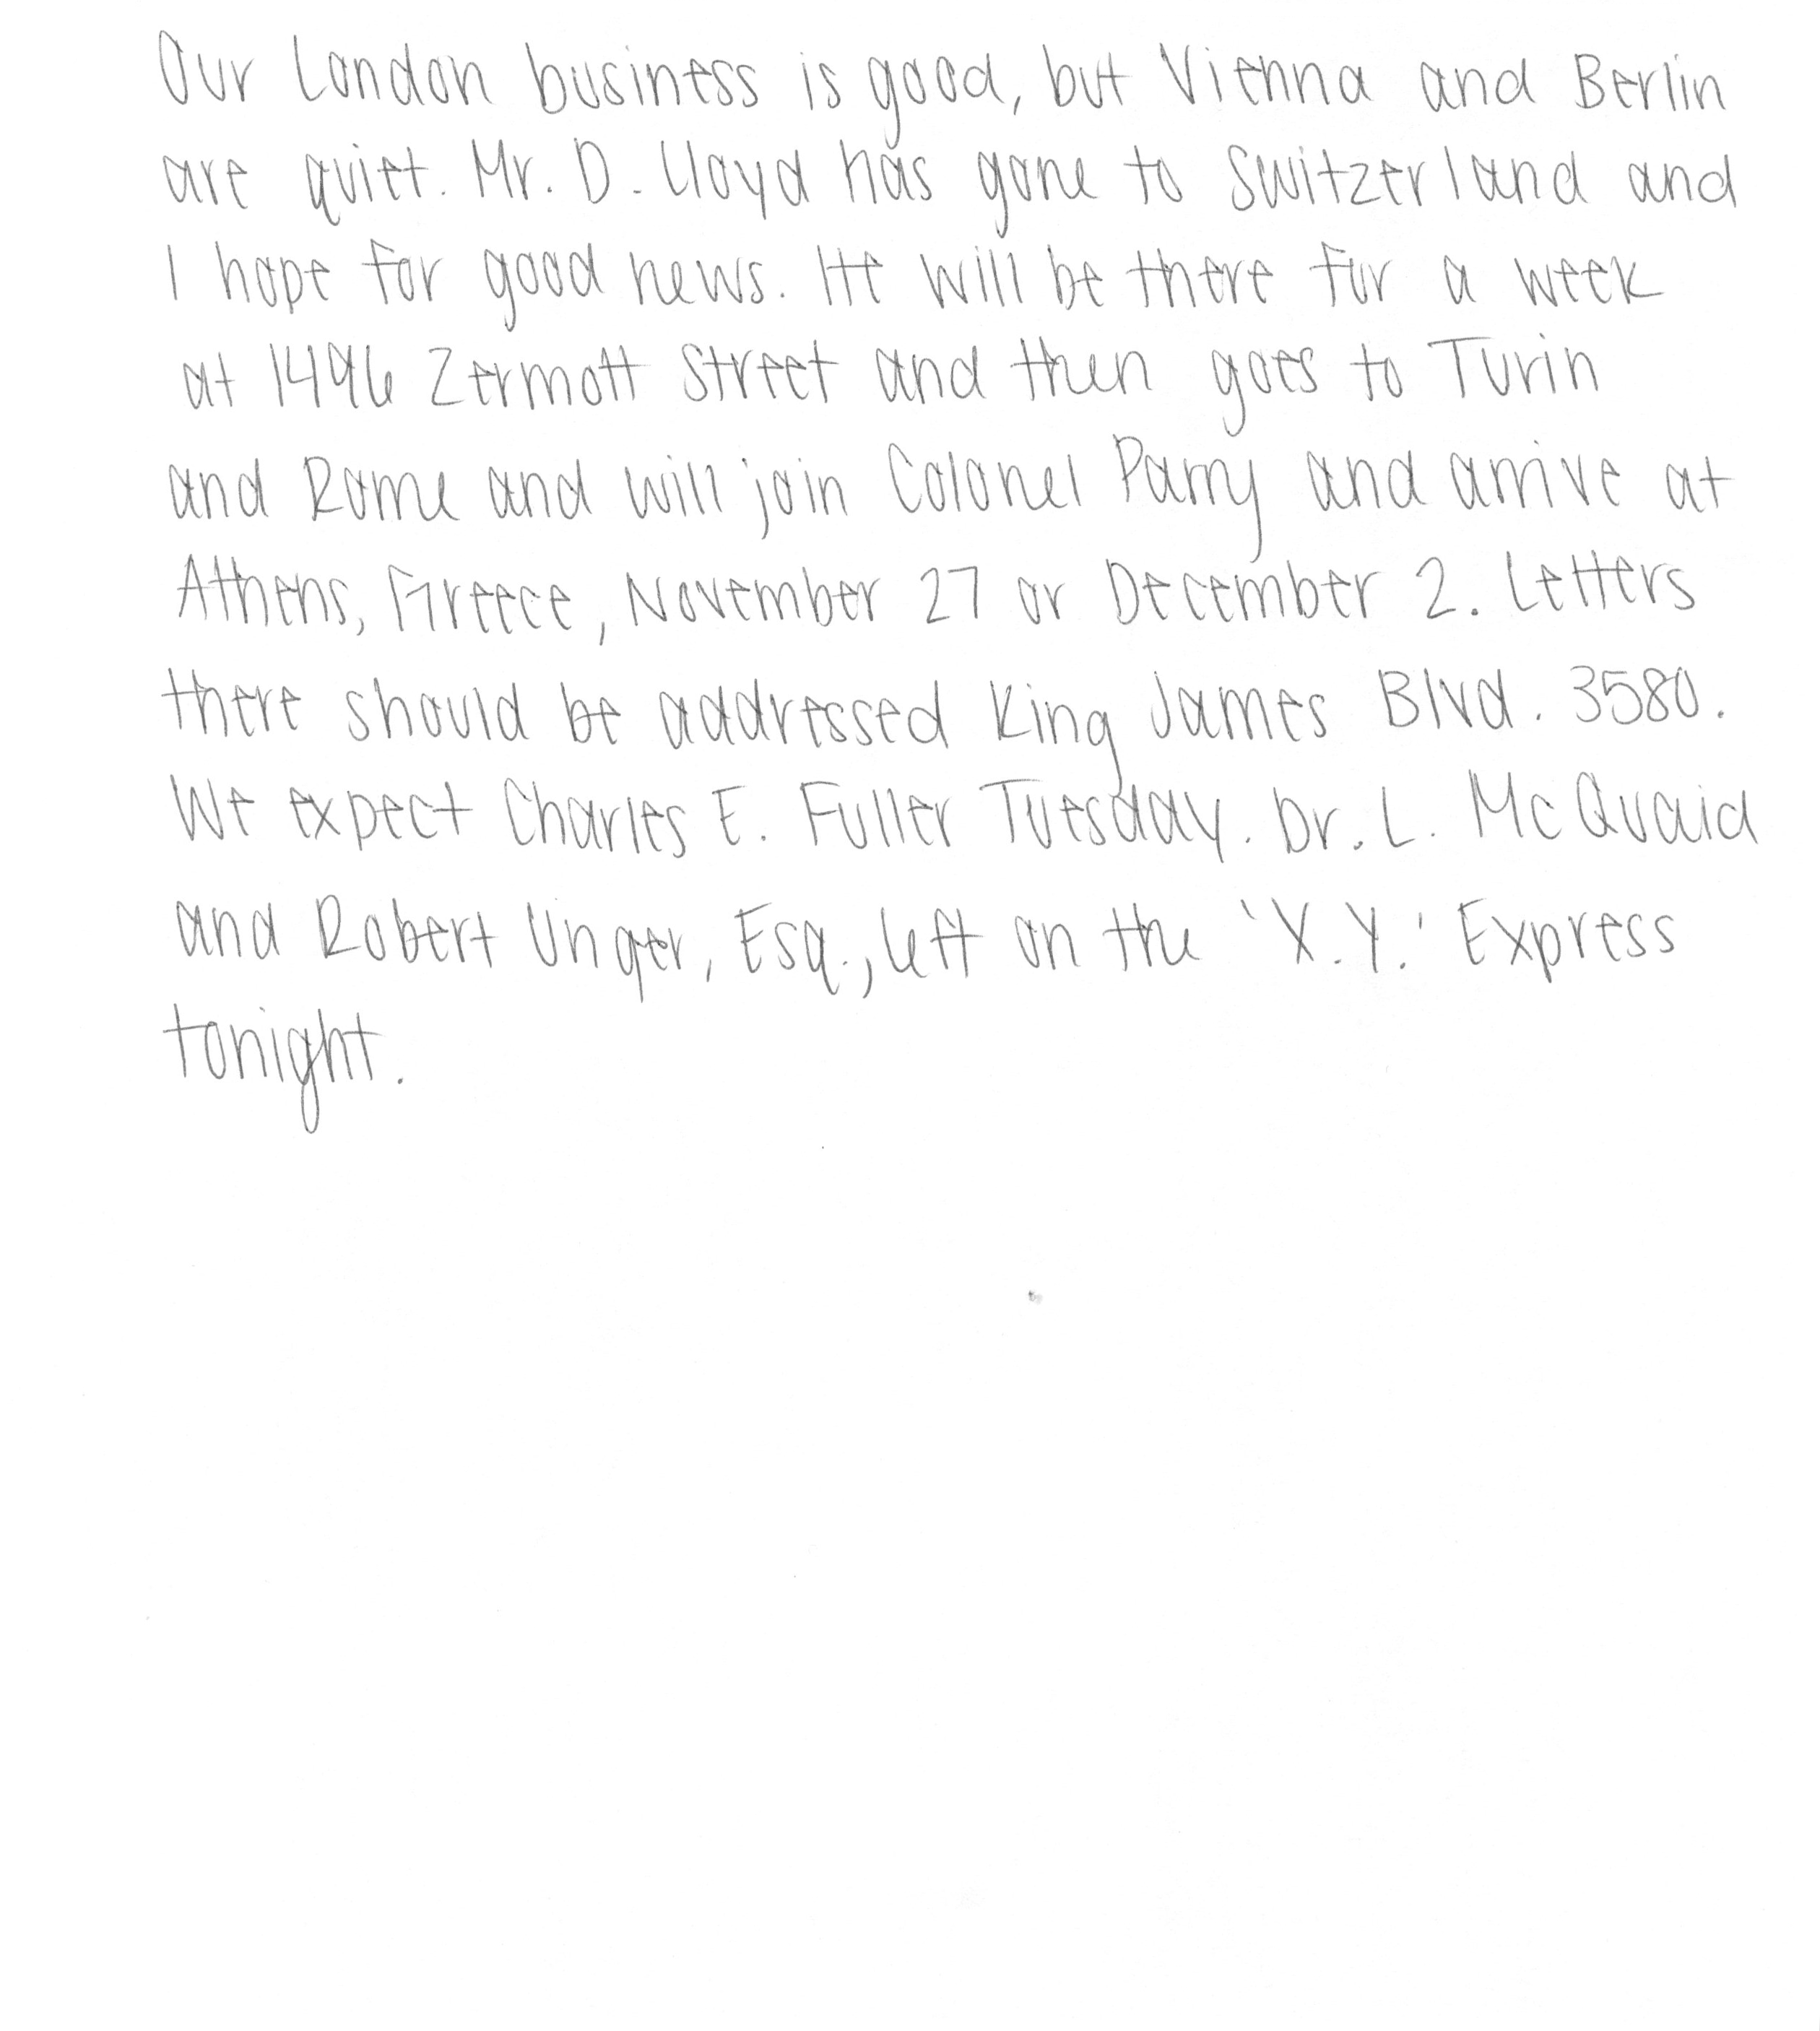 Our London business is good, but Vienna and Berlin
are quiet. Mr. D. Lloyd has gone to Switzerland and
I hope for good news. He will be there for a week
at 1496 Zermott Street and then goes to Turin
and Rome and will join Colonel Parry and arrive at
Athens, Greece, November 27 or December 2. Letters
there should be addressed King James Blvd. 3580.
We expect Charles E. Fuller Tuesday. Dr. L. McQuaid
and Robert Unger, Esq., left on the 'X.Y.' Express
tonight.